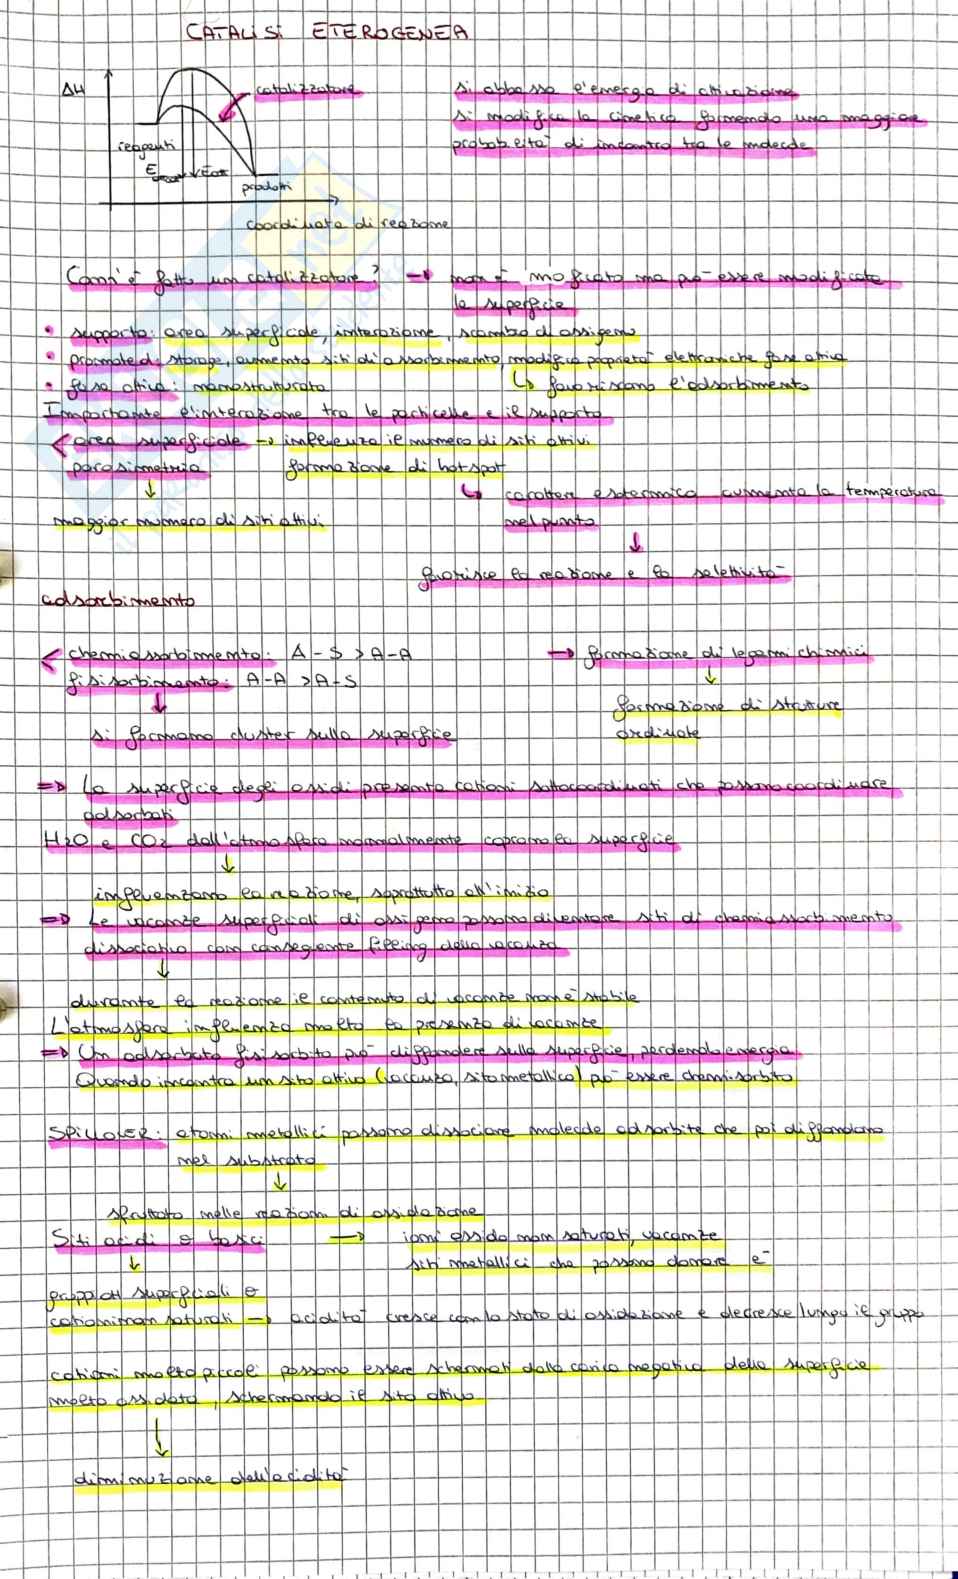 CATALISI ETEROGENEA
ΔH
catalizzatore
si abbassa l'energia di attivazione
si modifica la cinetica formando una maggiore
probabilità di incontro tra le molecole
reagenti
prodotti
coordinata di reazione
Com'è fatto un catalizzatore? → non è modificato ma può essere modificata
la superficie
• supporto: area superficiale, interazione, scambio di ossigeno
• promotedi: storage, aumento siti di assorbimento, modifica proprietà elettroniche fase attiva
• fase attiva: nanostrutturata ↳ favoriscono l'adsorbimento
Importante l'interazione tra le particelle e il supporto
area superficiale → influenza il numero di siti attivi
porosimetria formazione di hotspot
↓ ↳ carattere esotermico aumenta la temperatura
maggior numero di siti attivi nel punto
↓
favorisce la reazione e la selettività
adsorbimento
< chemiassorbimento: A-S > A-A → formazione di legami chimici
fisisorbimento: A-A > A-S ↓
↓ formazione di strutture
si formano cluster sulla superficie ordinate
⇒ La superficie degli ossidi presenta cationi sottocoordinati che possono coordinare
adsorbati
H2O e CO2 dall'atmosfera normalmente coprono la superficie
↓
influenzano la reazione, soprattutto all'inizio
⇒ Le vacanze superficiali di ossigeno possono diventare siti di chemiassorbimento
dissociativo con conseguente filling della vacanza
↓
durante la reazione il contenuto di vacanze non è stabile
L'atmosfera influenza molto la presenza di vacanze
⇒ Un adsorbato fisisorbito può diffondere sulla superficie, perdendo energia
Quando incontra un sito attivo (vacanza, sito metallico) può essere chemisorbito
SPILLOVER: atomi metallici possono dissociare molecole adsorbite che poi diffondono
nel substrato
↓
sfruttato nelle reazioni di ossidazione
Siti acidi e basici → ioni ossido non saturati, vacanze
↓ siti metallici che possono donare e⁻
gruppi OH superficiali e
cationi non saturati → acidità cresce con lo stato di ossidazione e decresce lungo il gruppo
cationi molto piccoli possono essere schermati dalla carica negativa della superficie
molto ossidata, schermando il sito attivo
↓
diminuzione dell'acidità